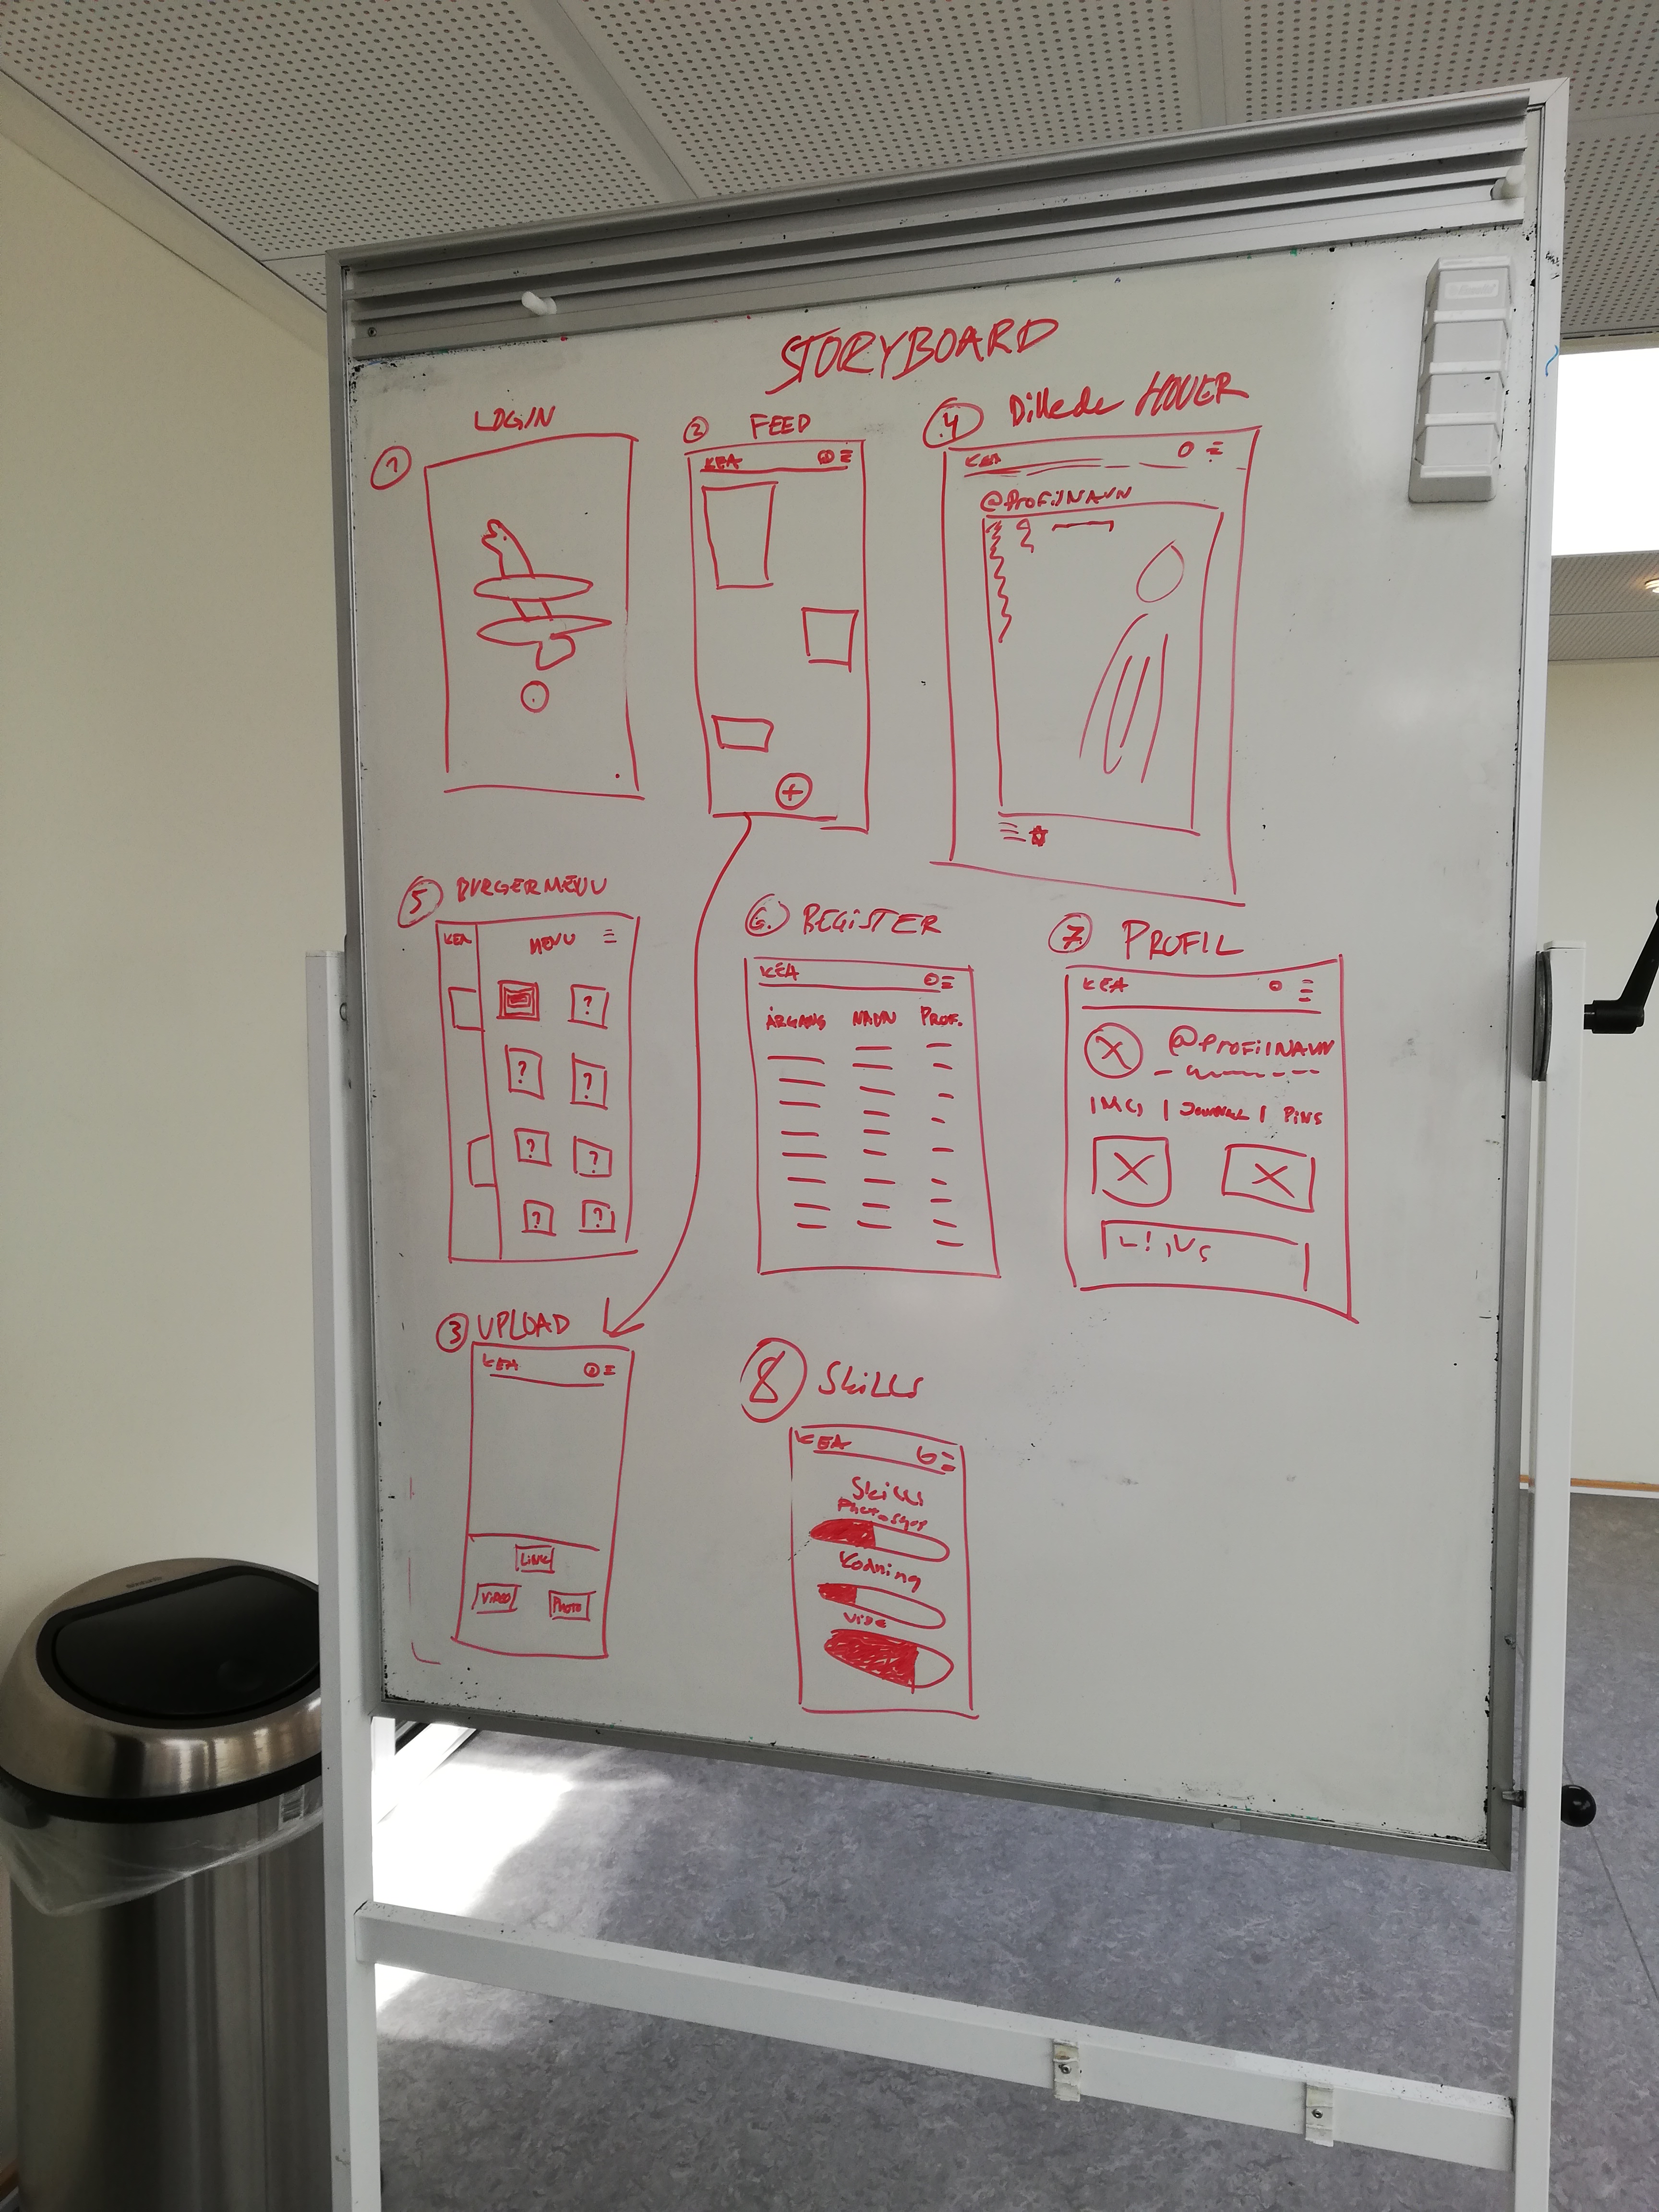 STORYBOARD
1 LOGIN
2 FEED
KEA
+
4 Dillede HOVER
KEA
@ProfilNAVN
5 BURGERMENU
KEA
MENU
?
? ?
? ?
? ?
6. REGISTER
KEA
ÅRGANG NAVN PROF.
7 PROFIL
KEA
@ProfilNAVN
IMG | JOURNAL | PINS
3 UPLOAD
KEA
LINK
VIDEO PHOTO
8 Skills
KEA
Skills
Photoshop
Kodning